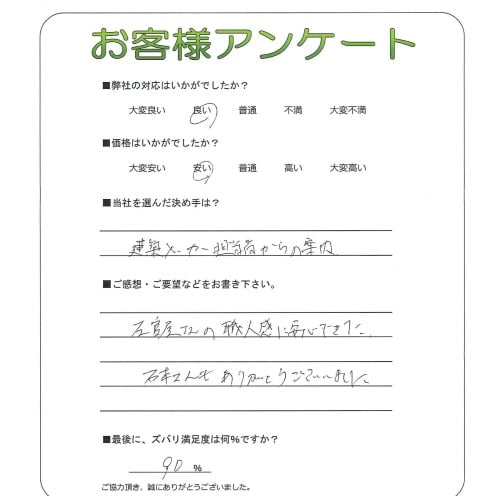 お客様アンケート
■弊社の対応はいかがでしたか？
大変良い 良い 普通 不満 大変不満
■価格はいかがでしたか？
大変安い 安い 普通 高い 大変高い
■当社を選んだ決め手は？
建築メーカー担当者からの案内
■ご感想・ご要望などをお書き下さい。
左官屋さんの職人感に安心できた。
石本さんもありがとうございました
■最後に、ズバリ満足度は何%ですか？
90 %
ご協力頂き、誠にありがとうございました。